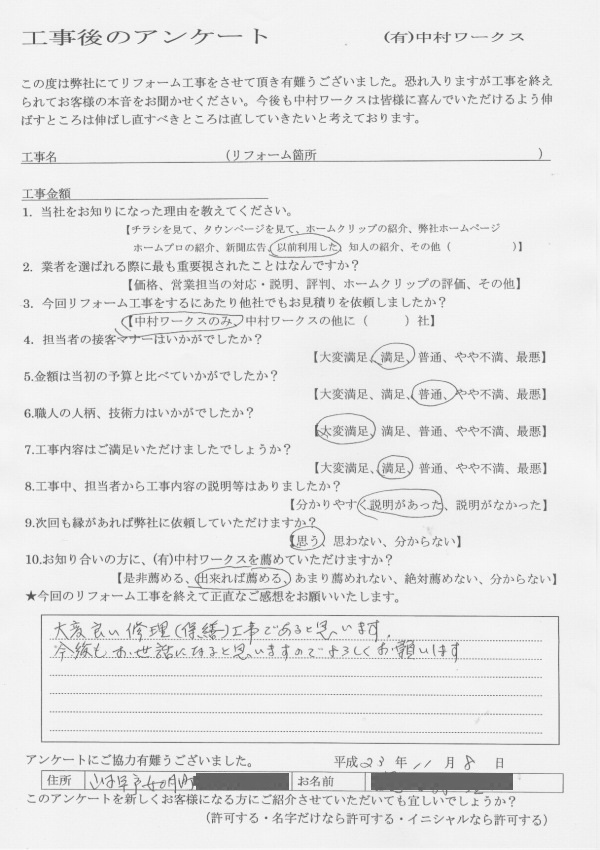 工事後のアンケート (有)中村ワークス
この度は弊社にてリフォーム工事をさせて頂き有難うございました。恐れ入りますが工事を終え
られてお客様の本音をお聞かせください。今後も中村ワークスは皆様に喜んでいただけるよう伸
ばすところは伸ばし直すべきところは直していきたいと考えております。
工事名 (リフォーム箇所 )
工事金額
1. 当社をお知りになった理由を教えてください。
【チラシを見て、タウンページを見て、ホームクリップの紹介、弊社ホームページ
ホームプロの紹介、新聞広告、以前利用した、知人の紹介、その他( )】
2. 業者を選ばれる際に最も重要視されたことはなんですか?
【価格、営業担当の対応・説明、評判、ホームクリップの評価、その他】
3. 今回リフォーム工事をするにあたり他社でもお見積りを依頼しましたか?
【中村ワークスのみ、中村ワークスの他に( )社】
4. 担当者の接客マナーはいかがでしたか?
【大変満足、満足、普通、やや不満、最悪】
5.金額は当初の予算と比べていかがでしたか?
【大変満足、満足、普通、やや不満、最悪】
6.職人の人柄、技術力はいかがでしたか?
【大変満足、満足、普通、やや不満、最悪】
7.工事内容はご満足いただけましたでしょうか?
【大変満足、満足、普通、やや不満、最悪】
8.工事中、担当者から工事内容の説明等はありましたか?
【分かりやすく説明があった、説明がなかった】
9.次回も縁があれば弊社に依頼していただけますか?
【思う、思わない、分からない】
10.お知り合いの方に、(有)中村ワークスを薦めていただけますか?
【是非薦める、出来れば薦める、あまり薦めれない、絶対薦めない、分からない】
★今回のリフォーム工事を終えて正直なご感想をお願いいたします。
大変良い修理(保繕)工事であると思います。
今後もお世話になると思いますのでよろしくお願いします
アンケートにご協力有難うございました。 平成23年11月8日
住所 お名前
このアンケートを新しくお客様になる方にご紹介させていただいても宜しいでしょうか?
(許可する・名字だけなら許可する・イニシャルなら許可する)